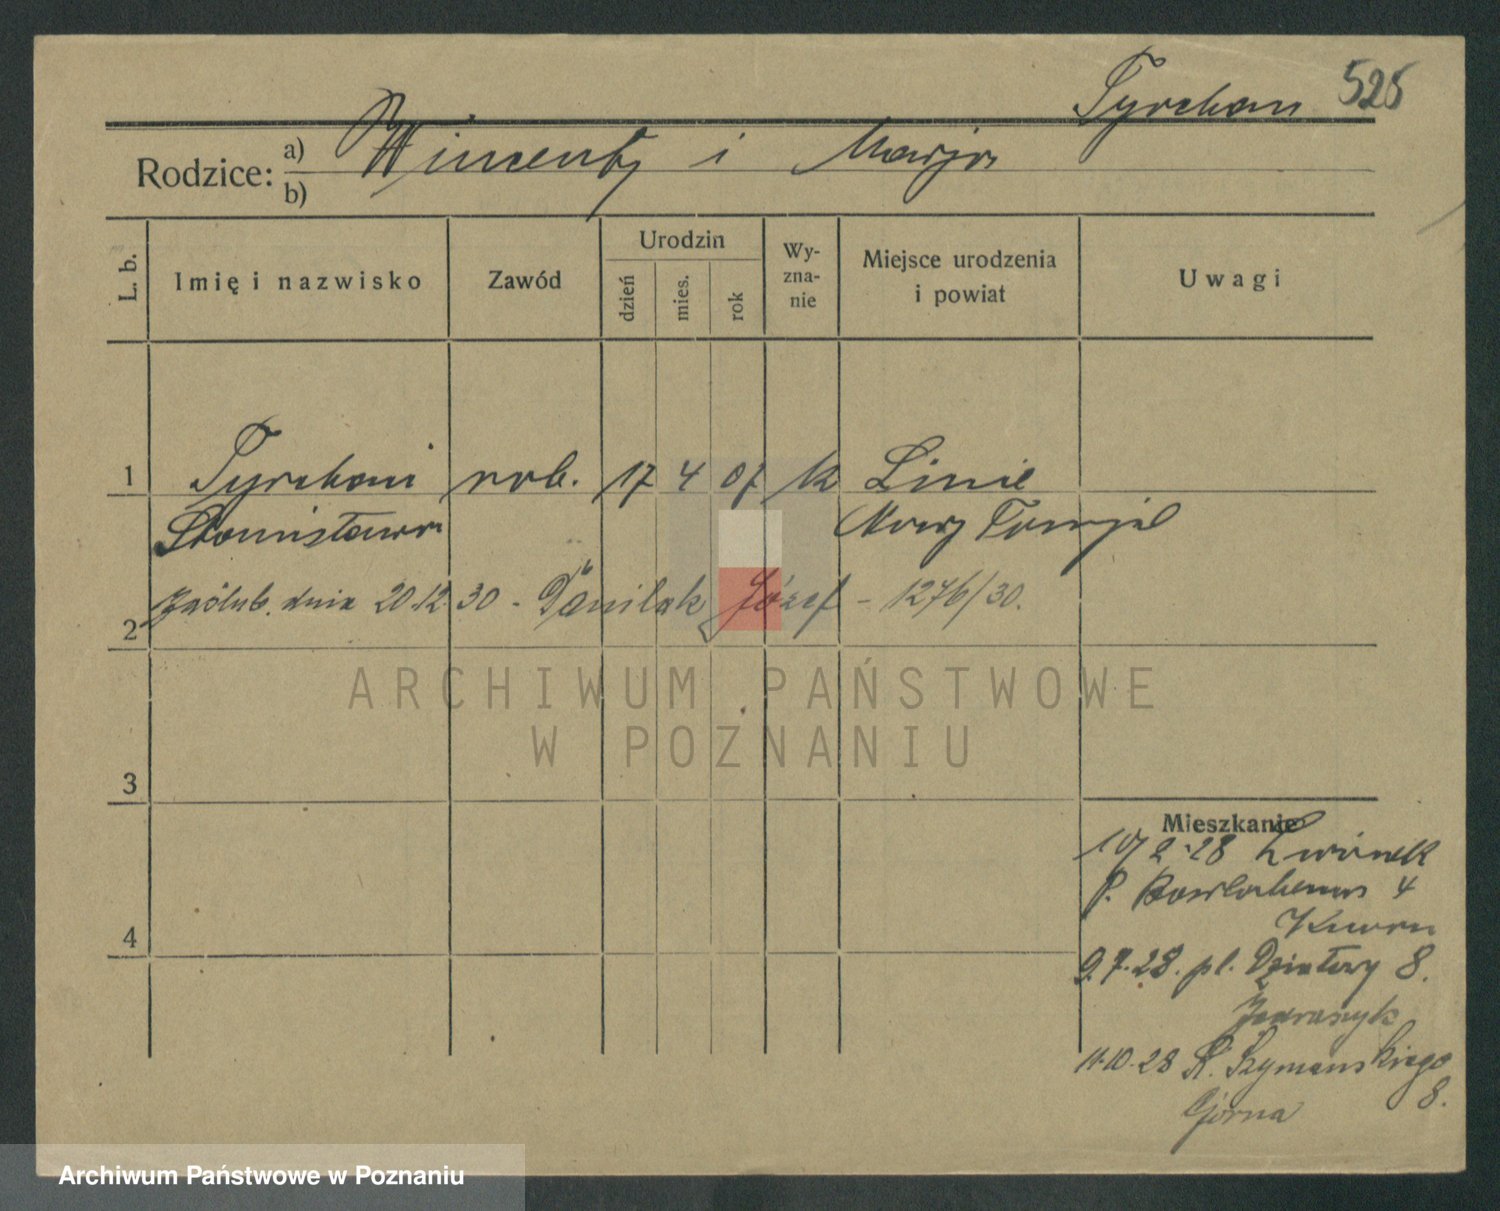 Tyrchan 525
Rodzice: a) Wincenty i Marja
b)
L. b. Imię i nazwisko Zawód Urodzin dzień mies. rok Wy-zna-nie Miejsce urodzenia i powiat Uwagi
1 Tyrchan rob. 17 4 07 k Linie
Stanisława Nowy Tomyśl
Zaślub. dnia 20.12.30 - Danilak Józef - 1276/30.
2
ARCHIWUM PAŃSTWOWE
W POZNANIU
3
Mieszkanie
10/2.28 Lwówek
P. 4
4
9.7.28. pl. Działowy 8.
11.10.28 Szymańskiego
Górna 8.
Archiwum Państwowe w Poznaniu